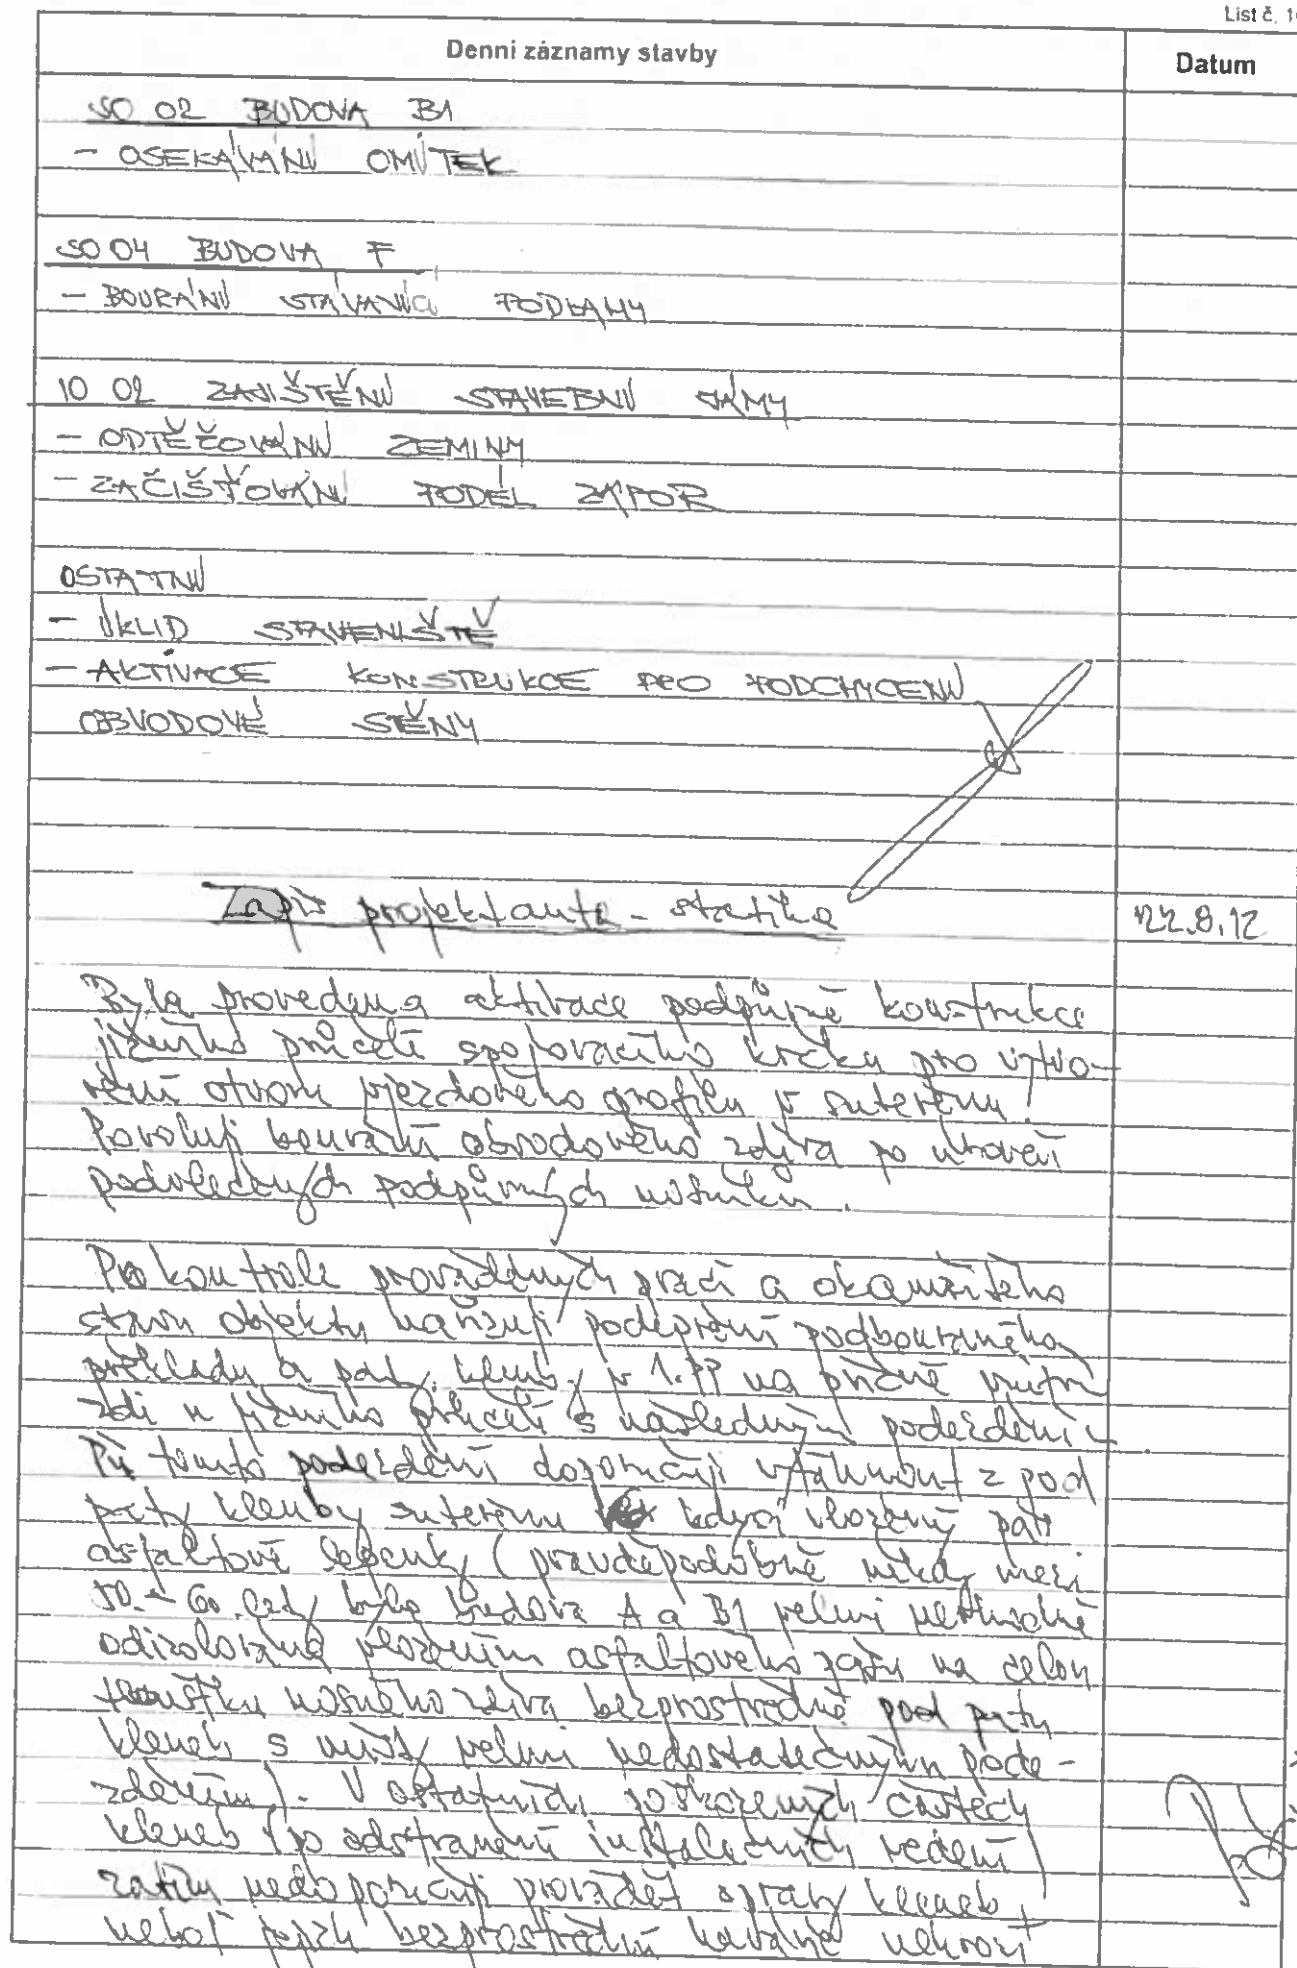 List č. 1
Denní záznamy stavby
Datum
SO 02 BUDOVA B1
- OSEKÁVÁNÍ OMÍTEK
SO 04 BUDOVA F
- BOURÁNÍ STÁVAJÍCÍ PODLAHY
IO 02 ZAJIŠTĚNÍ STAVEBNÍ JÁMY
- ODTĚŽOVÁNÍ ZEMINY
- ZAČIŠŤOVÁNÍ PODÉL ZÁPOR
OSTATNÍ
- ÚKLID STAVENIŠTĚ
- AKTIVACE KONSTRUKCE PRO PODCHYCENÍ
OBVODOVÉ STĚNY
Zápis projektanta - statika
22.8.12
Byla provedena aktivace podpůrné konstrukce
jižního průčelí spojovacího krčku pro vytvo-
ření otvoru vjezdového profilu v suterénu.
Povoluji bourání obvodového zdiva po úroveň
podvlečených podpůrných nosníků.
Po kontrole prováděných prací a okamžitého
stavu objektu nařizuji podepření podbouraného
překladu a paty klenby v 1.PP na příčné vnitřní
zdi u jižního průčelí s následným podezděním.
Při tomto podezdění doporučuji vytáhnout z pod
paty klenby suterénu kdysi vložený pás
asfaltové lepenky (pravděpodobně někdy mezi
50.-60. lety byla budova A a B1 velmi nevhodně
odizolována vložením asfaltového pásu na celou
tloušťku nosného zdiva bezprostředně pod patu
kleneb s místy velmi nedostatečným pode-
zděním). V ostatních poškozených částech
kleneb (po odstranění instalačních vedení)
zatím nedoporučuji provádět opravy kleneb,
neboť jejich bezprostřední havárie nehrozí